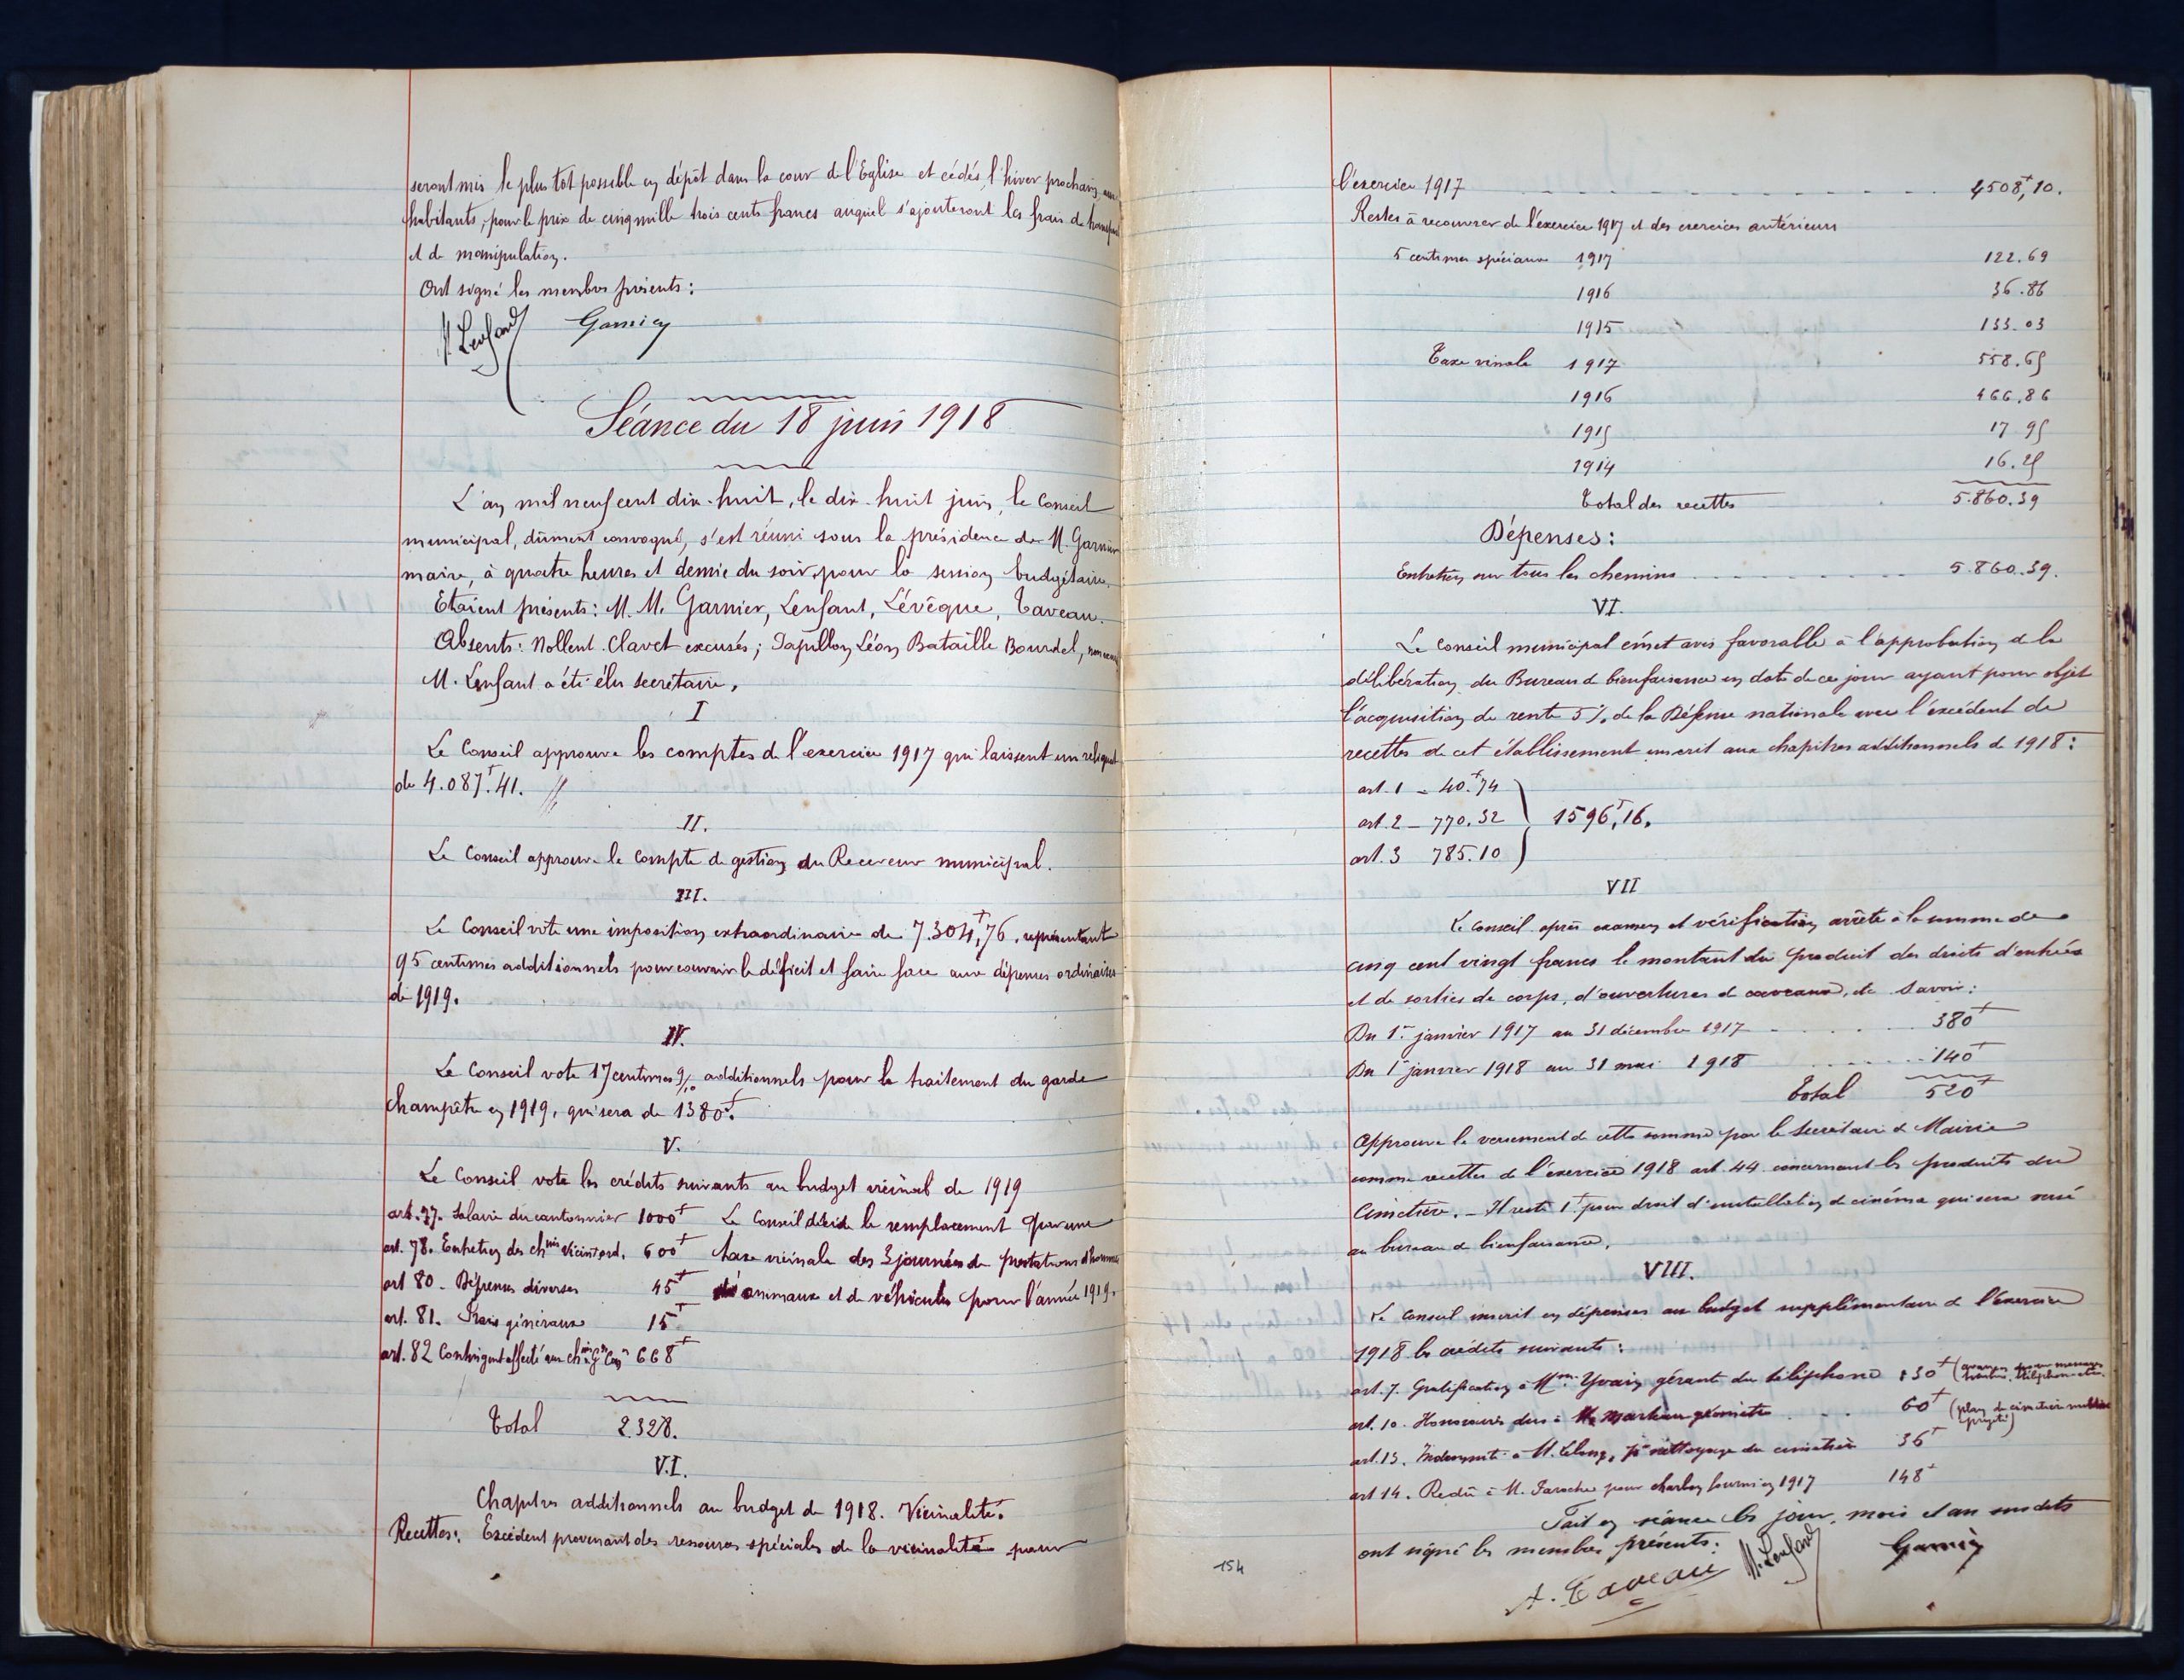 seront mis le plus tôt possible en dépôt dans la cour de l'Eglise et cédés, l'hiver prochain, aux
habitants, pour le prix de cinq mille trois cents francs auquel s'ajouteront les frais de transport
et de manipulation.
Ont signé les membres présents :
M. Lenfant Garnier
Séance du 18 juin 1918
L'an mil neuf cent dix-huit, le dix-huit juin, le Conseil
municipal, dûment convoqué, s'est réuni sous la présidence de M. Garnier
maire, à quatre heures et demie du soir, pour la session budgétaire.
Etaient présents : M.M. Garnier, Lenfant, Lévêque, Taveau.
Absents : Nollent. Clavet excusés ; Papillon, Léon, Bataille Bourdel, non
M. Lenfant a été élu secrétaire.
I
Le Conseil approuve les comptes de l'exercice 1917 qui laissent un reliquat
de 4.087f.41.
II.
Le Conseil approuve le compte de gestion du Receveur municipal.
III.
Le Conseil vote une imposition extraordinaire de 7.304f,76, représentant
95 centimes additionnels pour couvrir le déficit et faire face aux dépenses ordinaires
de 1919.
IV.
Le Conseil vote 17 centimes 9/10 additionnels pour le traitement du garde
champêtre en 1919, qui sera de 1380f.
V.
Le Conseil vote les crédits suivants au budget vicinal de 1919
art. 77. Salaire du cantonnier 1000f Le Conseil décide le remplacement par une
art. 78. Entretien des chmins vicin. ord. 600f taxe vicinale des 3 journées de prestations d'hommes
art 80 - Dépenses diverses 45f d'animaux et de véhicules pour l'année 1919.
art. 81. Frais généraux 15f
art. 82 Contingent affecté aux chmins Gde Con 668f
Total 2.328.
V.I.
Chapitres additionnels au budget de 1918. Vicinalité.
Recettes : Excédent provenant des ressources spéciales de la vicinalité pour
l'exercice 1917 4508f,10.
Restes à recouvrer de l'exercice 1917 et des exercices antérieurs
5 centimes spéciaux 1917 122.69
1916 36.86
1915 133.03
Taxe vicinale 1917 558.65
1916 466.86
1915 17 95
1914 16.25
Total des recettes 5.860.39
Dépenses :
Entretien sur tous les chemins 5.860.39.
VI.
Le Conseil municipal émet avis favorable à l'approbation de la
délibération du Bureau de bienfaisance en date de ce jour ayant pour objet
l'acquisition de rente 5% de la Défense nationale avec l'excédent de
recettes de cet établissement inscrit aux chapitres additionnels de 1918 :
art. 1 - 40f.74
art. 2 - 770.32 1596f,16.
art. 3 785.10
VII
Le Conseil après examen et vérification arrête à la somme de
cinq cent vingt francs le montant du produit des droits d'entrées
et de sorties de corps, d'ouvertures de caveaux, etc savoir :
Du 1er janvier 1917 au 31 décembre 1917 380f
Du 1er janvier 1918 au 31 mai 1918 140f
Total 520f
Approuve le versement de cette somme par le Secrétaire de Mairie
comme recettes de l'exercice 1918 art. 44 concernant les produits du
Cimetière. - Il reste 1f pour droit d'installation de cinéma qui sera versé
au bureau de bienfaisance.
VIII.
Le Conseil inscrit en dépenses au budget supplémentaire de l'exercice
1918 les crédits suivants :
art. 7. Gratification à Mme Yvain gérante du téléphone 130f
art. 10. Honoraires dus à M. géomètre 60f (plan de cimetière projeté)
art. 13. Indemnité à M. Lelong, pr nettoyage du cimetière 36f
art 14. Redû à M. Laroche pour charbon fourni en 1917 148f
Fait en séance les jour, mois et an susdits
ont signé les membres présents.
A. Taveau M. Lenfant Garnier
154